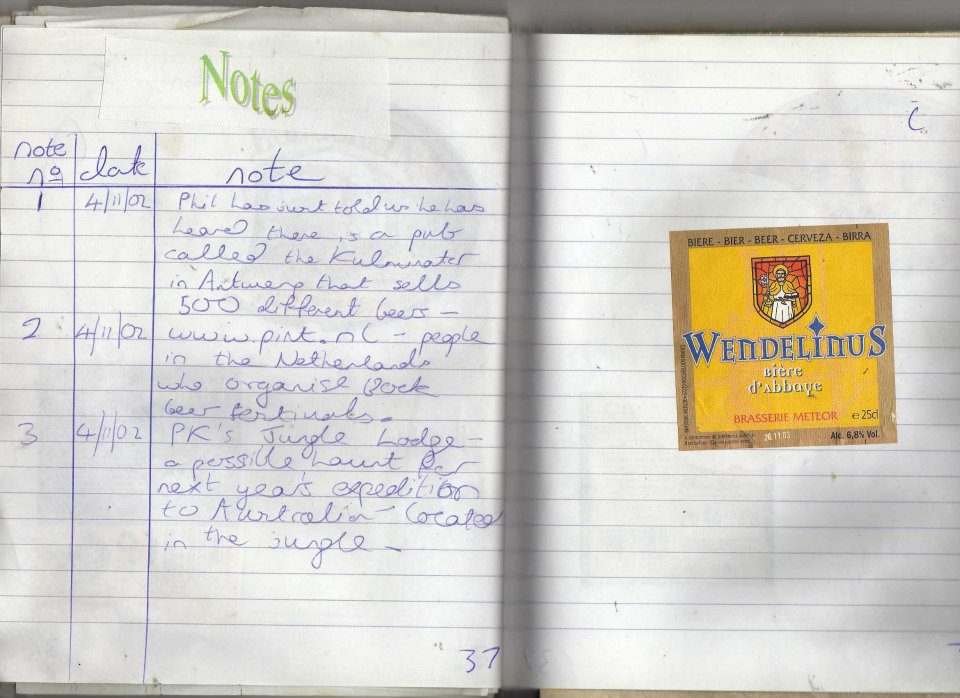 Notes
note nº date note
1 4/11/02 Phil has just told us he has
heard there is a pub
called the Kulminater
in Antwerp that sells
500 different beers -
2 4/11/02 www.pint.nl - people
in the Netherlands
who organise Bock
beer festivals.
3 4/11/02 PK's Jungle Lodge -
a possible haunt for
next year's expedition
to Australia - located
in the jungle -
37
BIÈRE - BIER - BEER - CERVEZA - BIRRA
WENDELINUS
Bière
d'Abbaye
BRASSERIE METEOR e 25cl
26.11.03 Alc. 6,8% Vol.